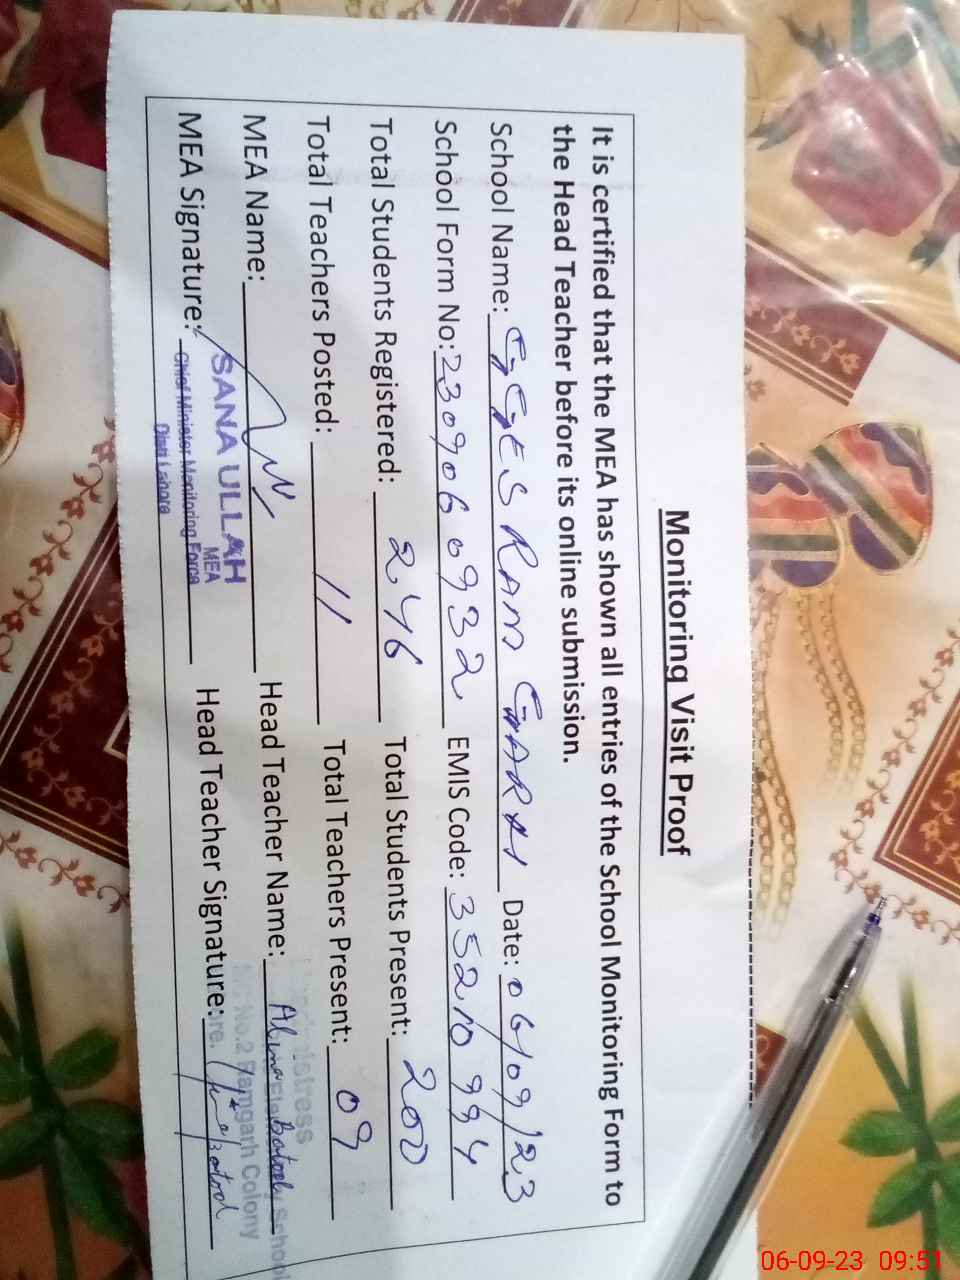 Monitoring Visit Proof
It is certified that the MEA has shown all entries of the School Monitoring Form to
the Head Teacher before its online submission.
School Name: GGES RAM GARH Date: 06/09/23
School Form No: 2309060932 EMIS Code: 35210994
Total Students Registered: 246 Total Students Present: 200
Total Teachers Posted: 11 Total Teachers Present: 09
MEA Name: Head Teacher Name: Batool
SANA ULLAH
MEA
MEA Signature: Head Teacher Signature:
Chief Minister Monitoring Force
Distt Lahore
School
No.2 Ramgarh Colony
06-09-23 09:51